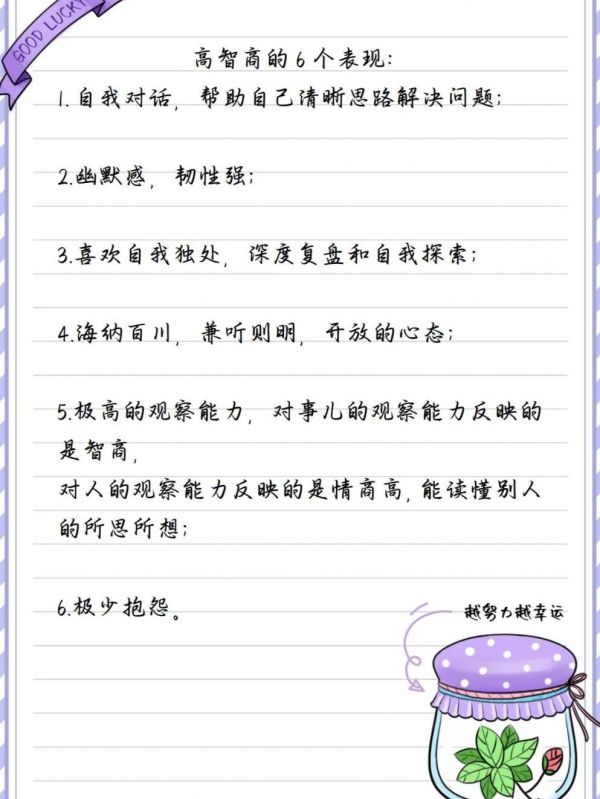 GOOD LUCKY
高智商的6个表现:
1.自我对话，帮助自己清晰思路解决问题;
2.幽默感，韧性强;
3.喜欢自我独处，深度复盘和自我探索;
4.海纳百川，兼听则明，开放的心态;
5.极高的观察能力，对事儿的观察能力反映的
是智商，
对人的观察能力反映的是情商高，能读懂别人
的所思所想;
6.极少抱怨。
越努力越幸运